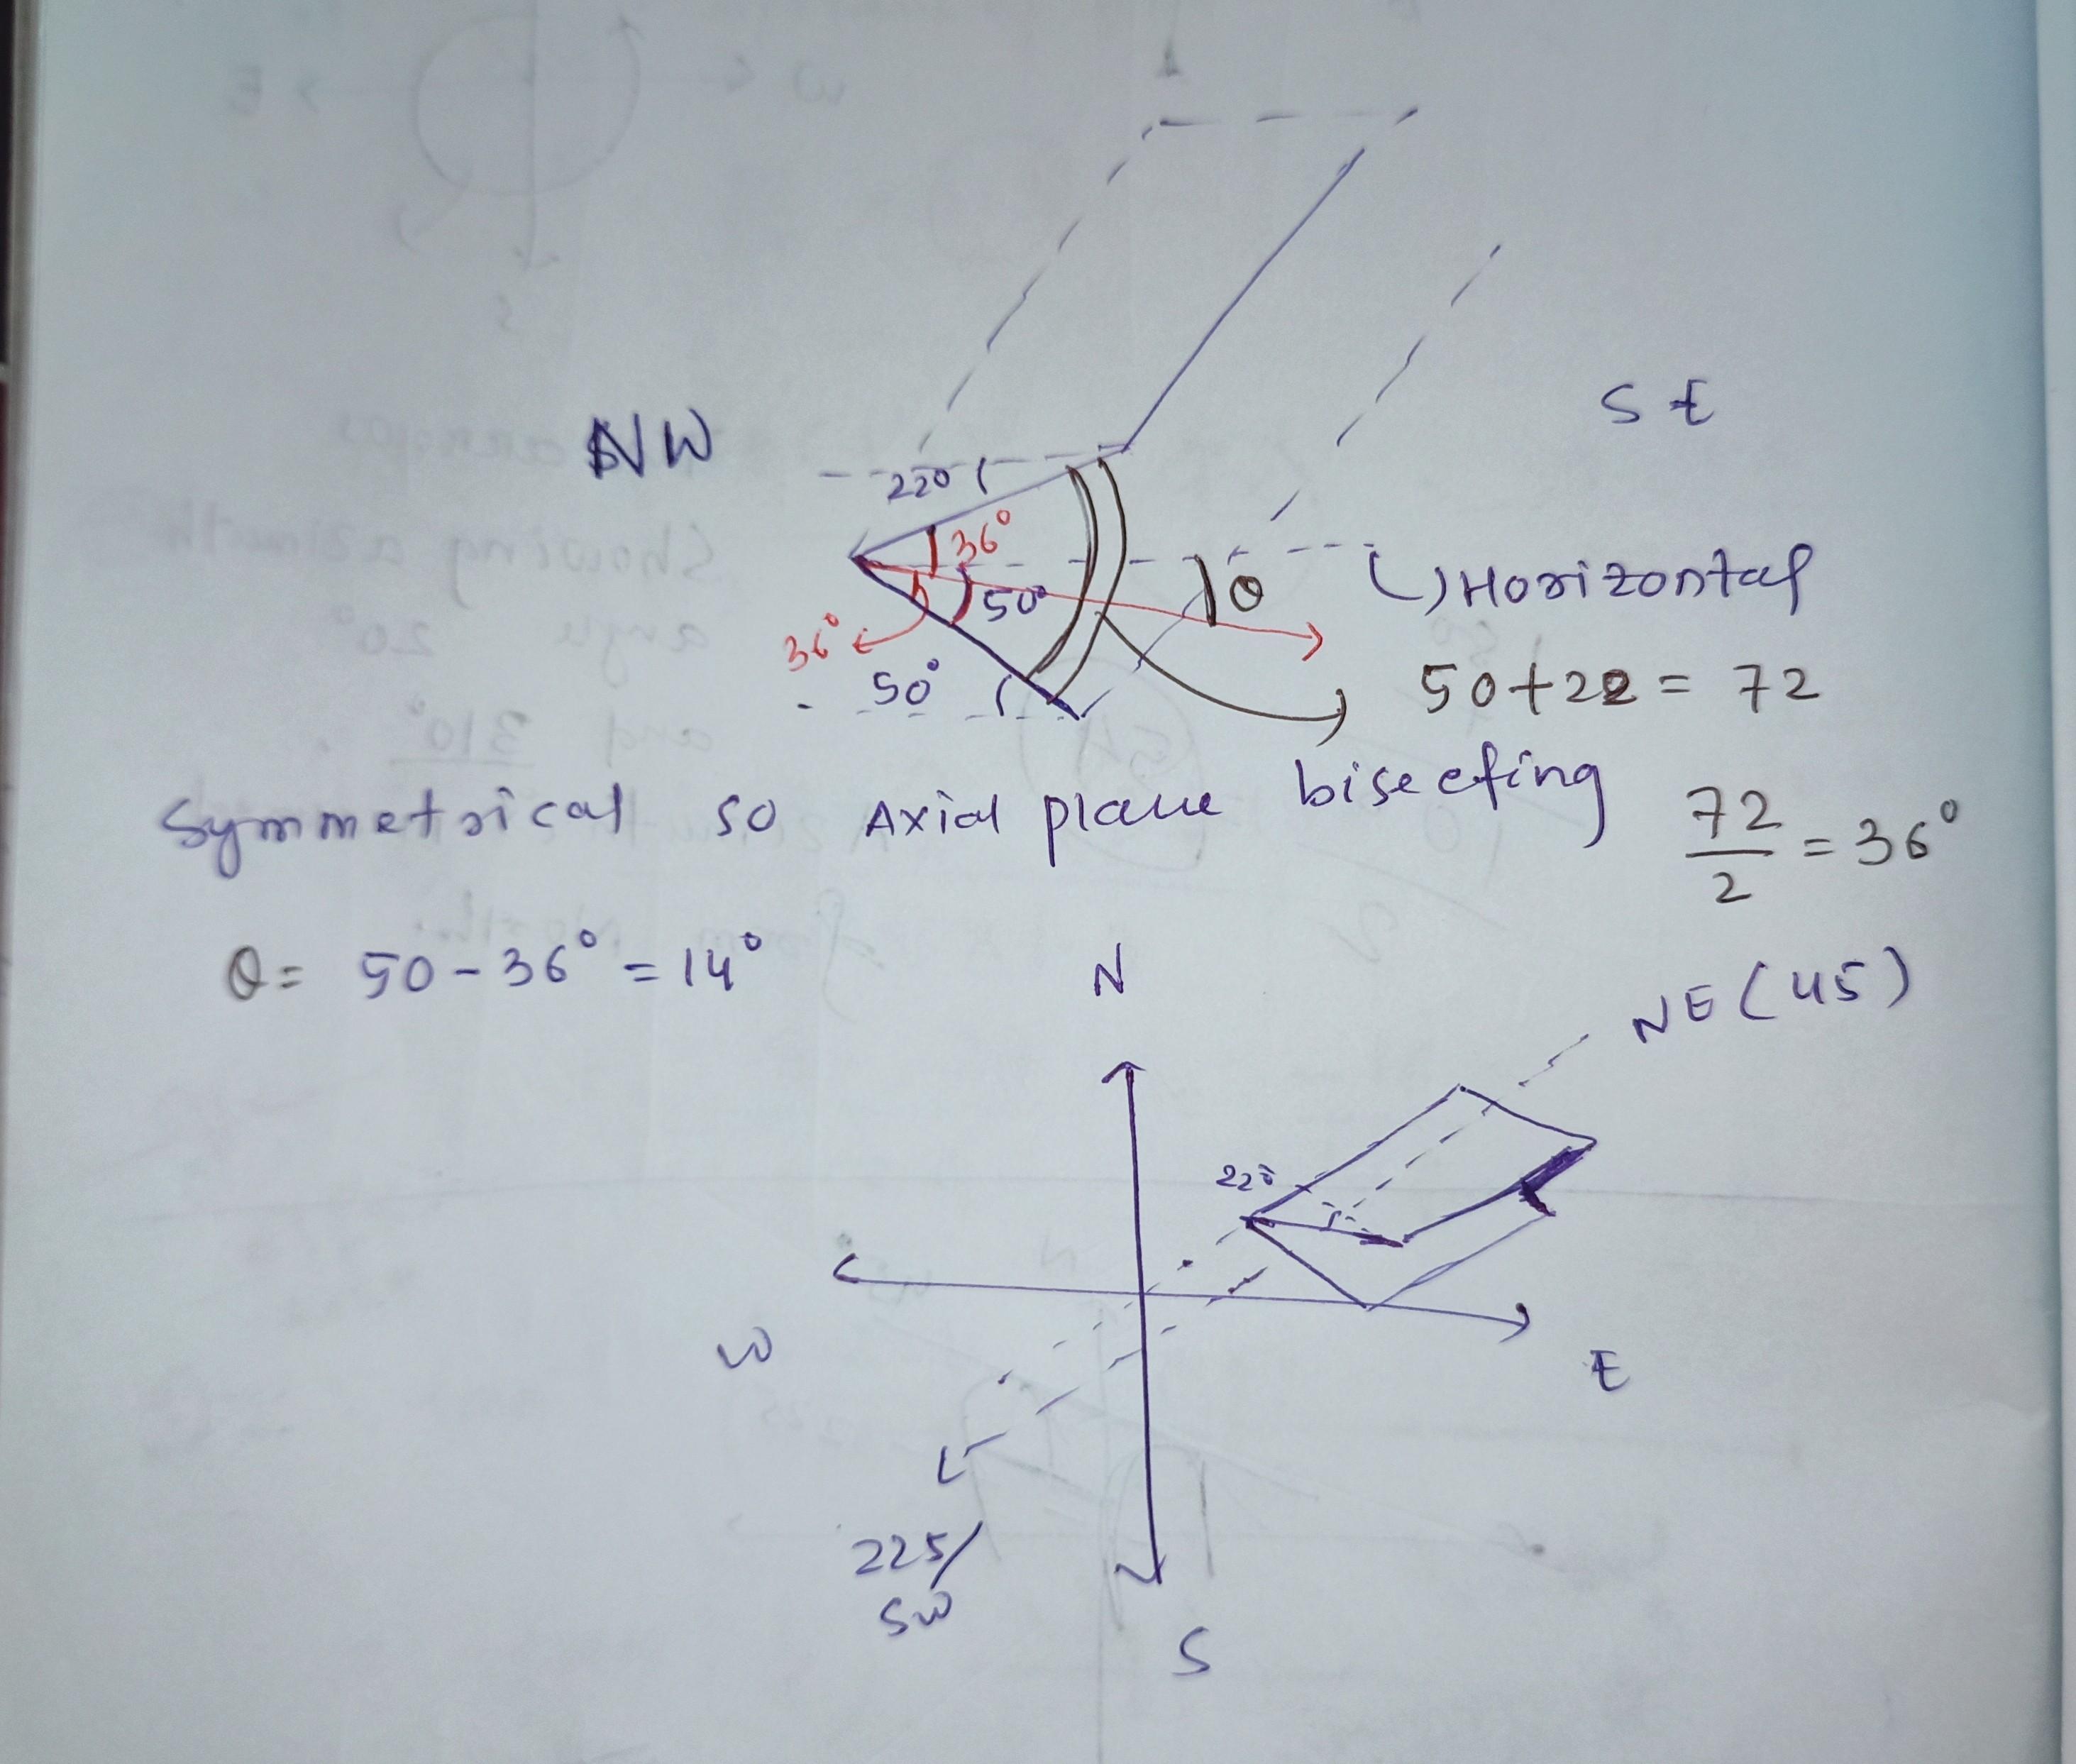 NW
SE
22°
36°
50°
θ
Horizontal
36°
50°
50+22 = 72
Symmetrical so Axial plane bisecting
72/2 = 36°
θ = 50 - 36° = 14°
N
NE (45)
22°
W
E
225/
SW
S